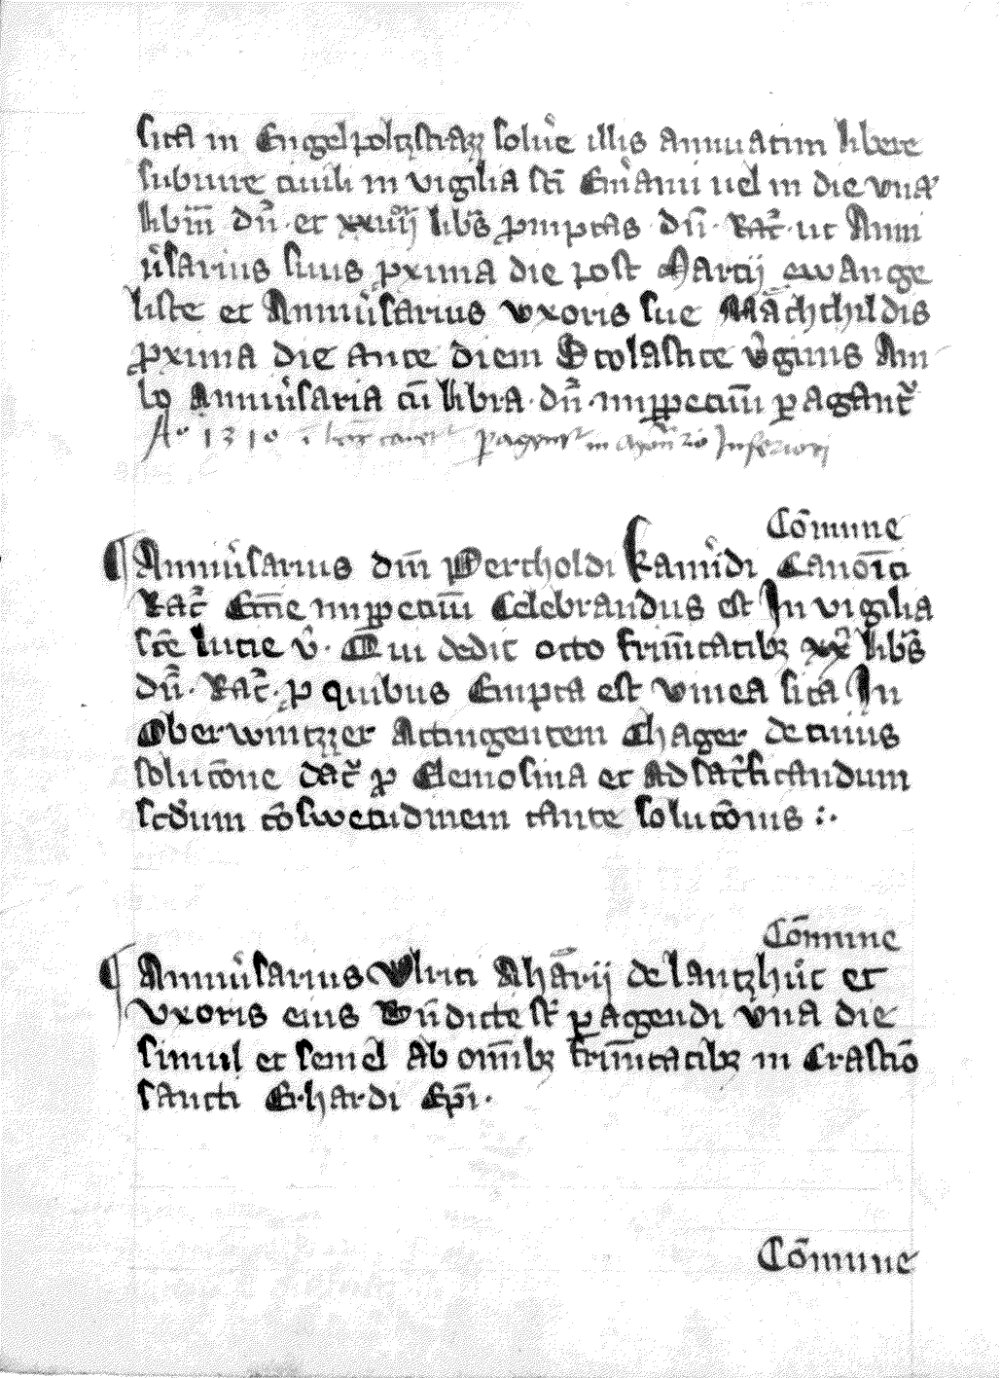 sita in Engelpoltzstrazz solu̓e illis annuatim libere
subiure ciuili in vigilia sc̄i Em̓ami uel in die vna̓
libr̄m dn̓. et xxiiij libr̓s ꝓmptas dn̄. Rat̓. ut Anni
u̓sarius suus ꝓxima die post Marcij ewange
liste et Anniu̓sarius vxoris sue Mächthildis
ꝓxima die ante diem Scolastice v̓ginis Am
bo Anniu̓saria cū libra. dn̓. inꝑpetuū ꝑagant̓
Aº 1310 ꝑagunt̓ in Inferiori
Cōmune
¶ Anniu̓sarius dn̄i Pertholdi kamm̓di Canōici
Rat̓ Ecc̄e inꝑpetuū Celebrandus est In vigilia
sc̄e lucie v̓. Qui dedit octo frat̓nitatibꝫ xx̓ libr̓s
dn̓. Rat̓. ꝓ quibus Empta est vinea sita In
Oberwintzzer Attingentem Chager de cuius
solucōne dat̓ ꝓ Elemosina et Ad sac̓ficandum
scd̓um cōswetudinem tante solucōnis :.
Cōmune
¶ Anniu̓sarius Vlrici Ahārij de lantzhu̓t et
vxoris eius Bn̄dicte st̓ ꝑagendi vna die
simul et semel ab om̄ibꝫ frat̓nitatibꝫ in Crastiō
sancti Erhardi Ep̄i.
Cōmune